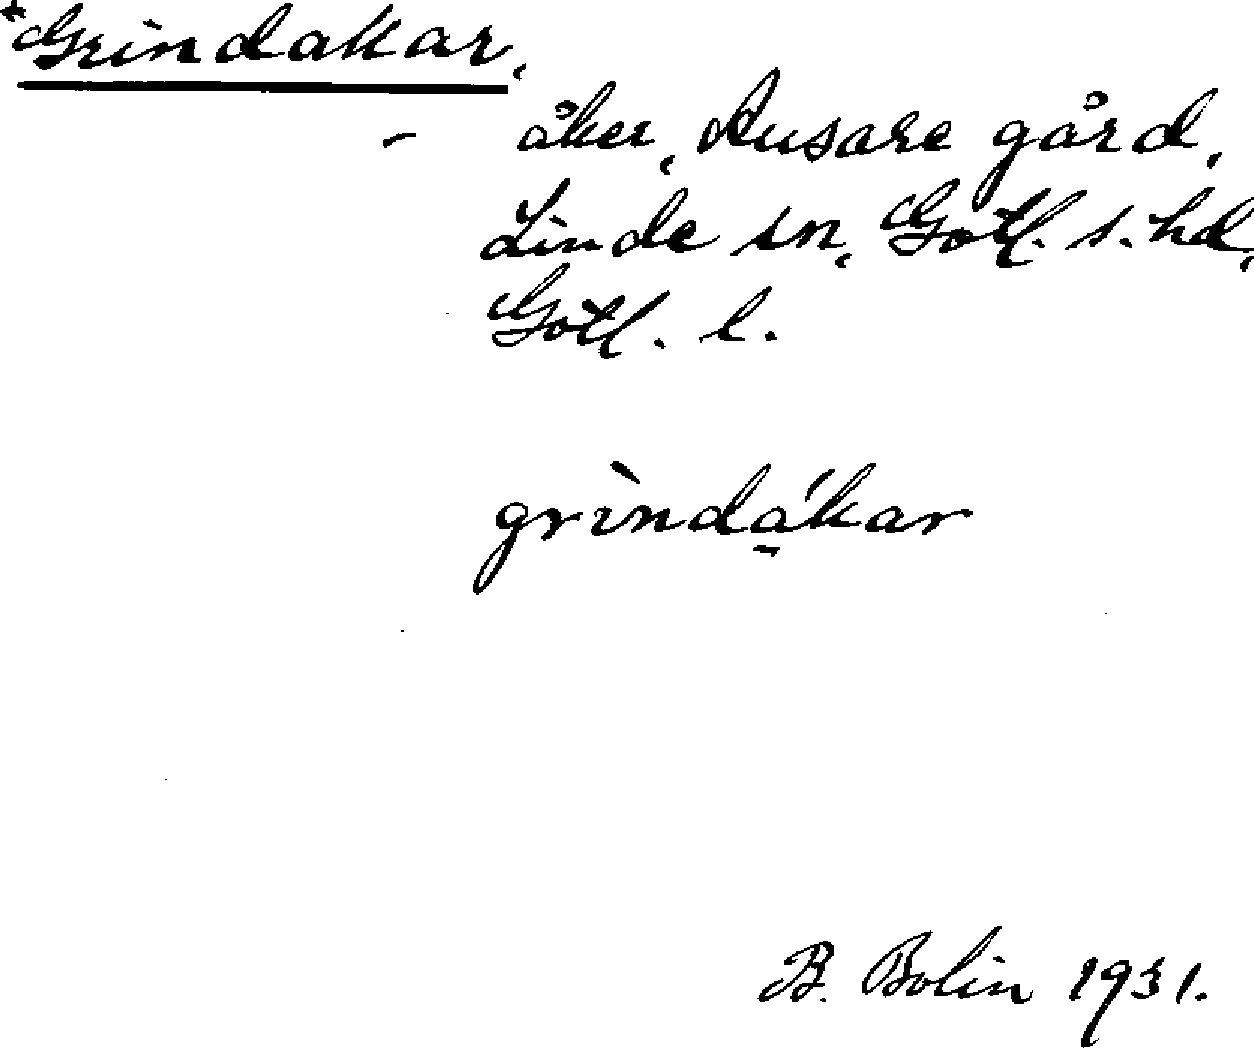 *Grindakar,
- åker, Ausare gård,
Linde sn, Gotl. s. hd,
Gotl. l.
grìndákar
B. Bolin 1931.